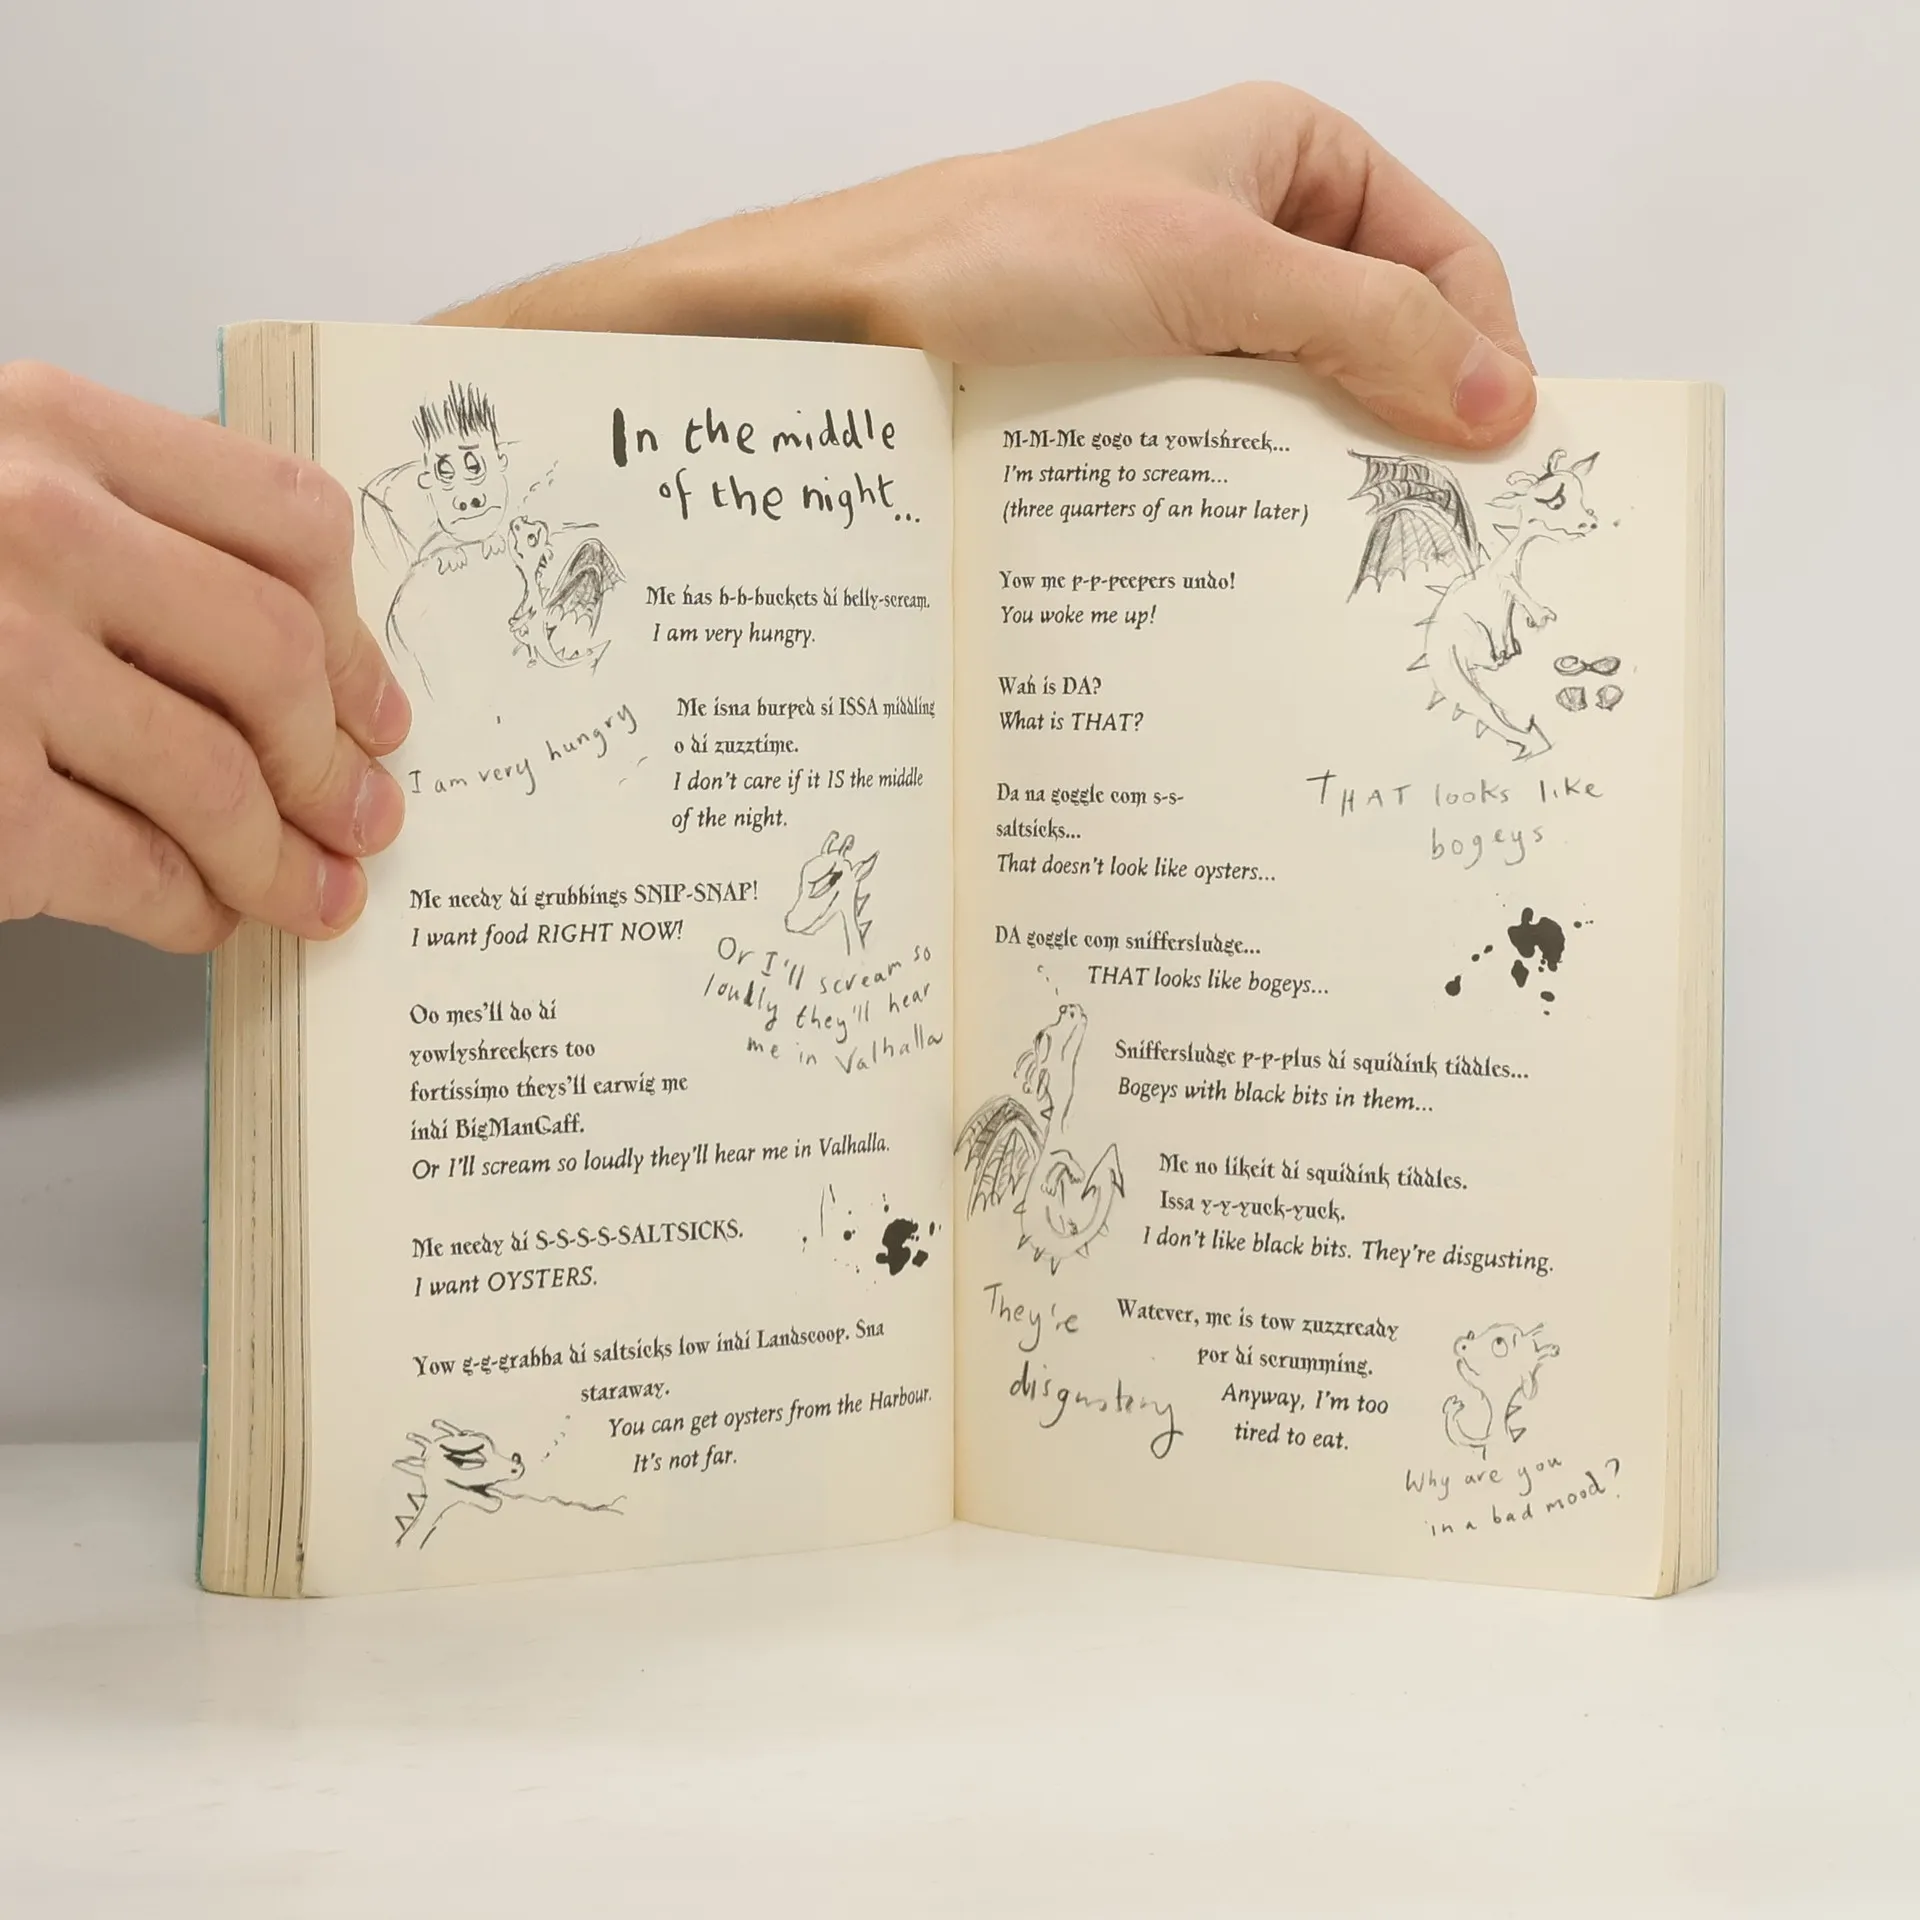 In the middle
of the night...
Me has b-b-buckets di belly-scream.
I am very hungry.
I am very hungry
Me isna burped si ISSA middling
o di zuzztime.
I don't care if it IS the middle
of the night.
Me needy di grubbings SNIP-SNAP!
I want food RIGHT NOW!
Or I'll scream so
loudly they'll hear
me in Valhalla
Oo mes'll do di
yowlyshreekers too
fortissimo theys'll earwig me
indi BigManGaff.
Or I'll scream so loudly they'll hear me in Valhalla.
Me needy di S-S-S-S-SALTSICKS.
I want OYSTERS.
Yow g-g-grabba di saltsicks low indi Landscoop. Sna
staraway.
You can get oysters from the Harbour.
It's not far.
M-M-Me gogo ta yowlshreek...
I'm starting to scream...
(three quarters of an hour later)
Yow me p-p-peepers undo!
You woke me up!
Wah is DA?
What is THAT?
Da na goggle com s-s-
saltsicks...
That doesn't look like oysters...
THAT looks like
bogeys
DA goggle com sniffersludge...
THAT looks like bogeys...
Sniffersludge p-p-plus di squidink tiddles...
Bogeys with black bits in them...
Me no likeit di squidink tiddles.
Issa y-y-yuck-yuck.
I don't like black bits. They're disgusting.
They're
disgusting
Watever, me is tow zuzzready
por di scrumming.
Anyway, I'm too
tired to eat.
Why are you
in a bad mood?